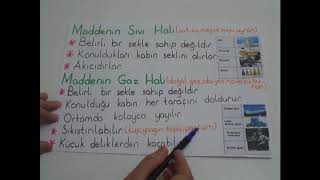 Maddenin Sıvı Hali (süt, su, meyve suyu, ayran)
* Belirli bir şekle sahip değildir.
* Konuldukları kabın şeklini alırlar.
* Akıcıdırlar.
Maddenin Gaz Hali (doğal gaz,
* Belirli bir şekle sahip değildir.
* Konulduğu kabın her tarafını doldurur.
* Ortamda kolayca yayılır.
* Sıkıştırılabilir. (tüp, yangın tüpü,
* Küçük deliklerden kaçabilir